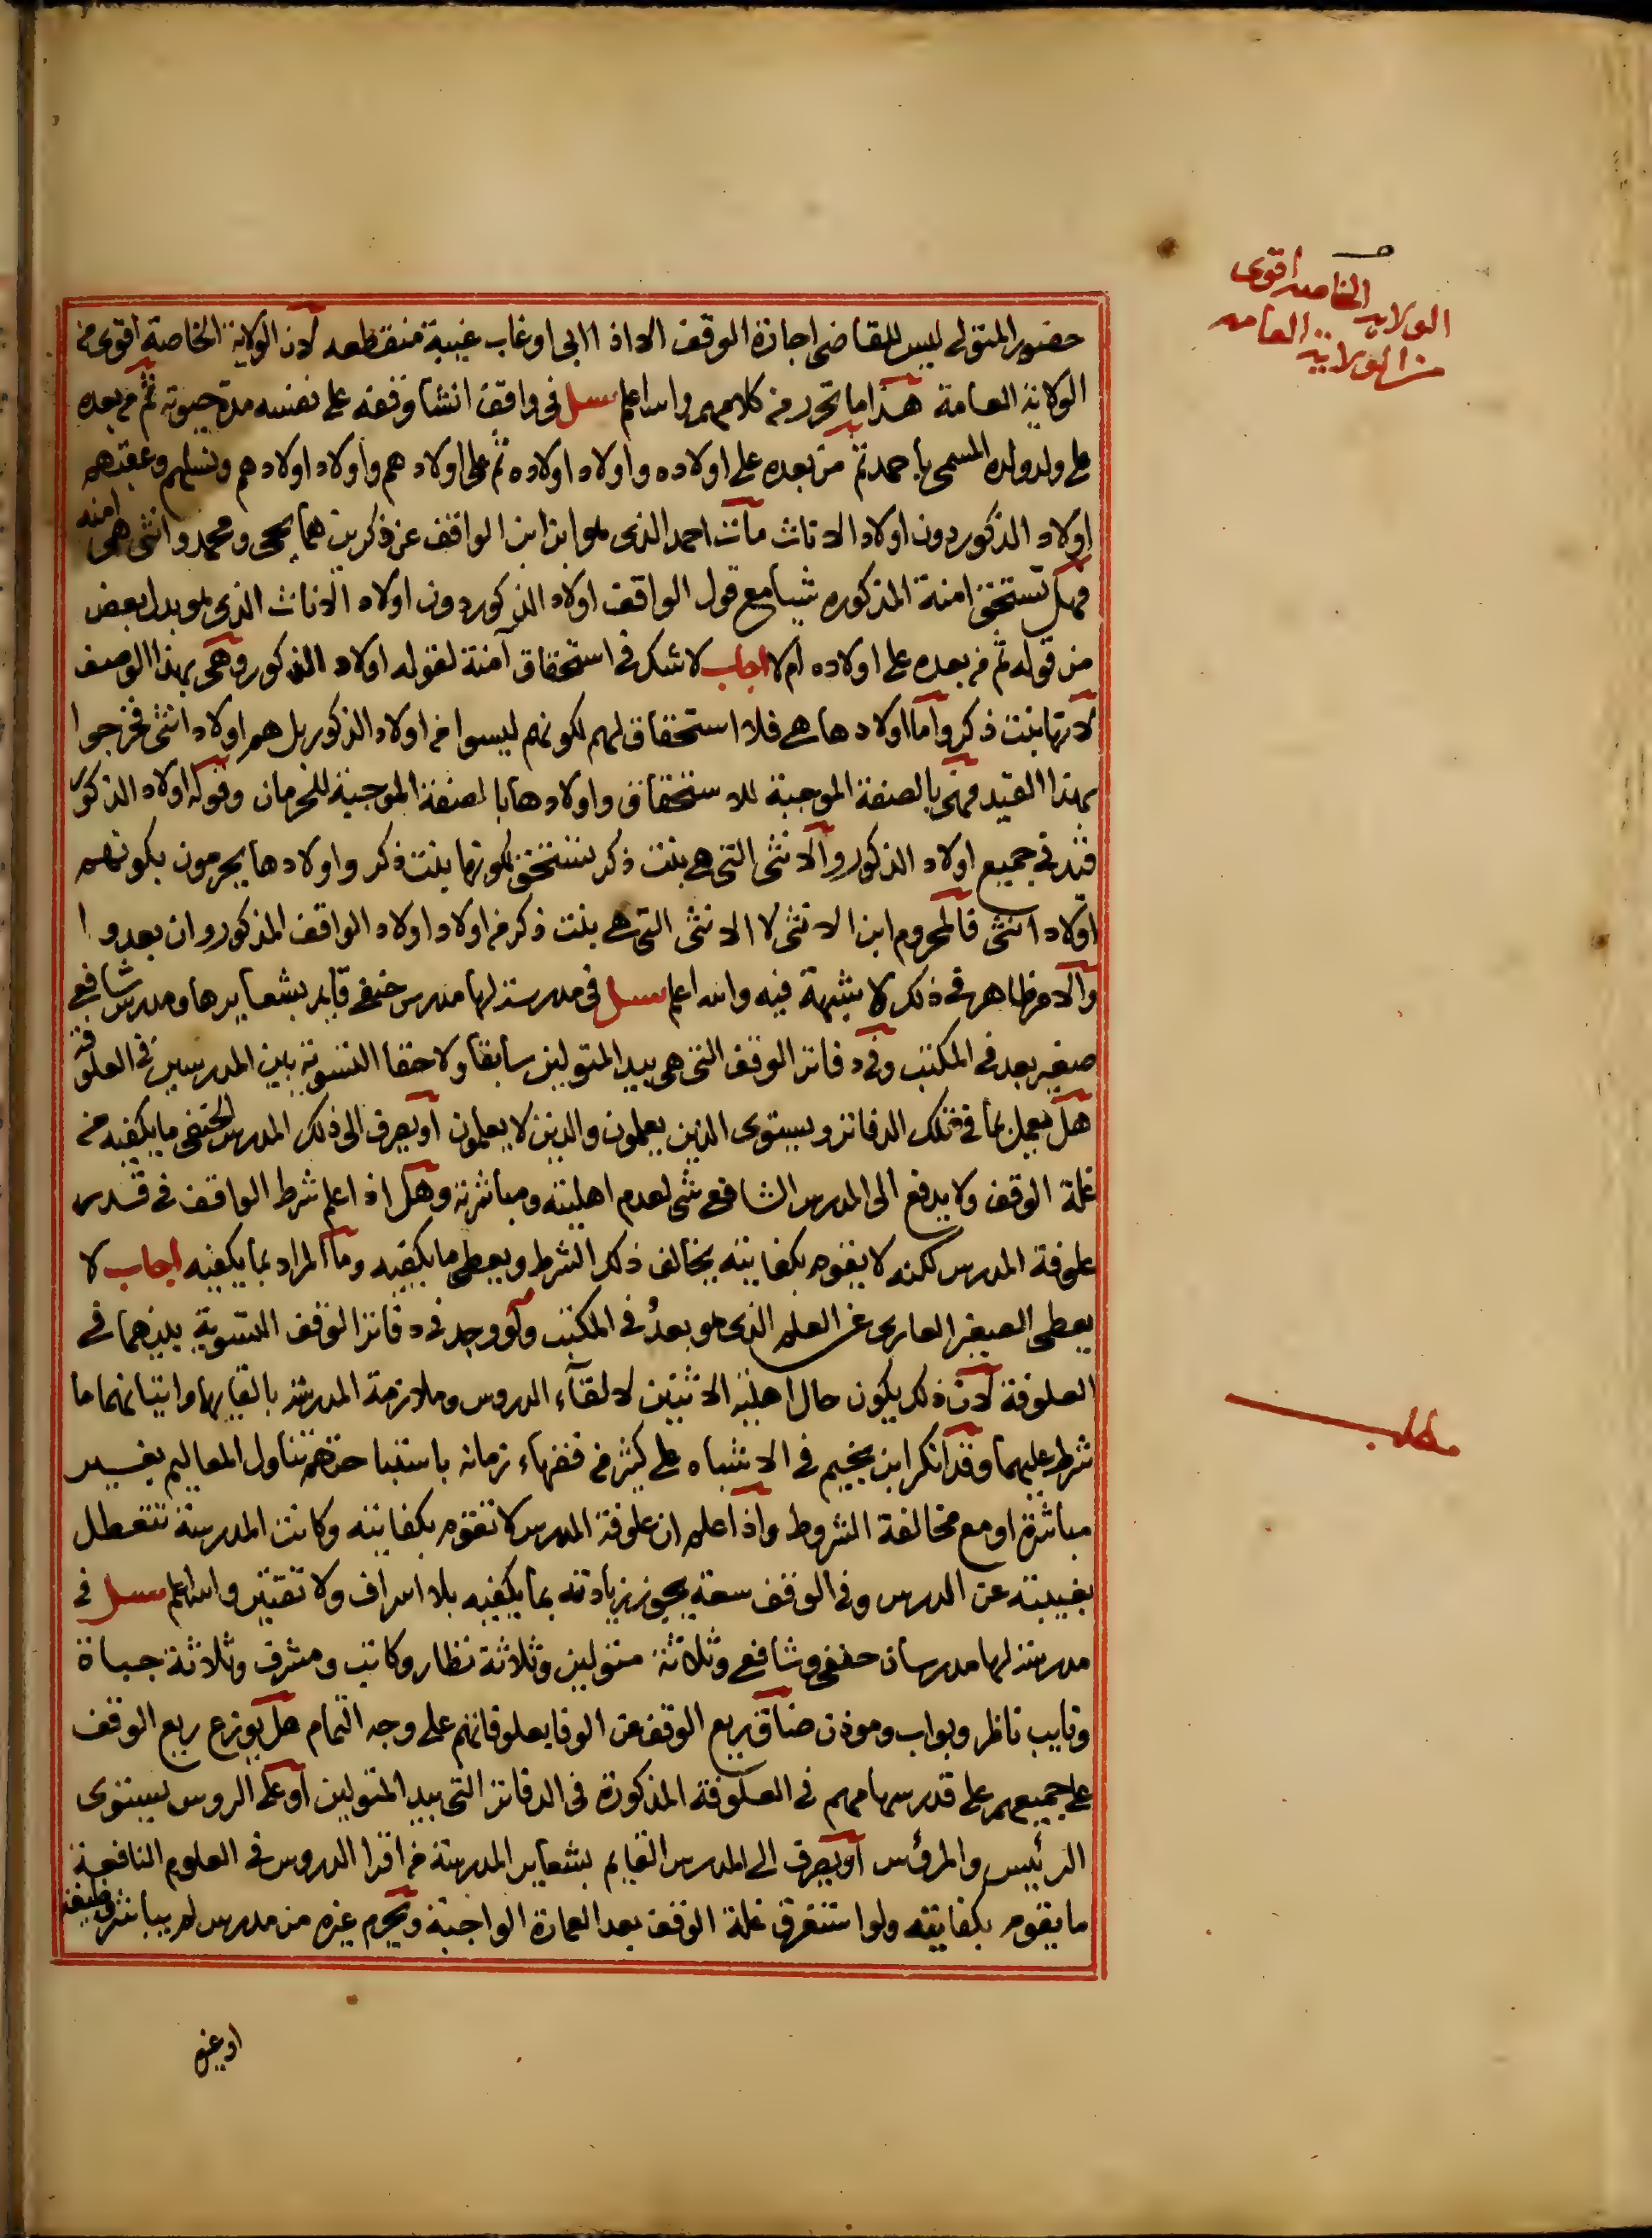 الولاية الخاصة اقوى
من الولاية العامة
حضور المتولى ليس للقاضى اجازة الوقف الا اذا ابى او غاب غيبة منقطعه لان الولاية الخاصة اقوى من
الولاية العامة هذا ما تحرر من كلامهم والله اعلم سئل فى واقف انشا وقفه على نفسه مدة حيوته ثم من بعده
على ولد ولده المسمى باحمد ثم من بعده على اولاده واولاد اولاده ثم على اولادهم واولاد اولادهم ونسلهم وعقبهم
اولاد الذكور دون اولاد الاناث مات احمد الذى هو ابن ابن الواقف عن ذكرين هما يحيى ومحمد وانثى هى امنه
فهل تستحق امنة المذكوره شيا مع قول الواقف اولاد الذكور دون اولاد الاناث الذى هو بدل بعض
من قوله ثم من بعده على اولاده ام لا اجاب لا شك فى استحقاق آمنة لقوله اولاد الذكور وهى بهذا الوصف
لانها بنت ذكر واما اولادها هى فلا استحقاق لهم لكونهم ليسوا من اولاد الذكور بل هم اولاد انثى فخرجوا
بهذا القيد فهى بالصفة الموجبة للاستحقاق واولادها بالصفة الموجبة للحرمان وقوله اولاد الذكور
قيد فى جميع اولاد الذكور والانثى التى هى بنت ذكر تستحق لكونها بنت ذكر واولادها يحرمون بكونهم
اولاد انثى فالمحروم ابن الانثى لا الانثى التى هى بنت ذكر من اولاد اولاد الواقف المذكور وان بعدوا
والامر ظاهر فى ذلك لا شبهة فيه والله اعلم سئل فى مدرسة لها مدرس حنفى قايم بشعايرها ومدرس شافعى
صغير بعد فى المكتب وفى دفاتر الوقف التى هى بيد المتولين سابقا ولاحقا التسوية بين المدرسين فى العلوفة
هل يعمل بما فى تلك الدفاتر ويستوى الذين يعلمون والذين لا يعلمون او يصرف الى ذلك المدرس الحنفى ما يكفيه من
غلة الوقف ولا يدفع الى المدرس الشافعى شى لعدم اهليته ومباشرته وهل اذا علم شرط الواقف فى قدر
علوفة المدرس لكنه لا يقوم بكفايته يخالف ذلك الشرط ويعطى ما يكفيه وما المراد بما يكفيه اجاب لا
يعطى الصغير العارى عن العلم الذى هو بعدُ فى المكتب ولو وجد فى دفاتر الوقف التسوية بينهما فى
العلوفة لان ذلك يكون حال اهلية الاثنين لالقاء الدروس وملازمة المدرسة بالقايها واتيانهما ما
شرط عليهما وقد انكر ابن نجيم فى الاشباه على كثير من فقهاء زمانه باستباحتهم تناول المعاليم بغير
مباشرة او مع مخالفة الشروط واذا علم ان علوفة المدرس لا تقوم بكفايته وكانت المدرسة تتعطل
بغيبته عن الدرس وفى الوقف سعة يجوز زيادته بما يكفيه بلا اسراف ولا تقتير والله اعلم سئل فى
مدرسة لها مدرسان حنفى وشافعى وثلاثة متولين وثلاثة نظار وكاتب ومشرف وثلاثة جباة
ونايب ناظر وبواب وموذن ضاق ريع الوقف عن الوفا بعلوفاتهم على وجه التمام هل يوزع ريع الوقف
على جميعهم على قدر سهامهم فى العلوفة المذكورة فى الدفاتر التى بيد المتولين او على الروس يستوى
الرئيس والمرؤس او يصرف الى المدرس القايم بشعاير المدرسة من اقرا الدروس فى العلوم النافعة
ما يقوم بكفايته ولو استغرق غلة الوقف بعد العمارة الواجبة ويحرم غيره من مدرس لم يباشر وظيفته
او غيره
مطلب